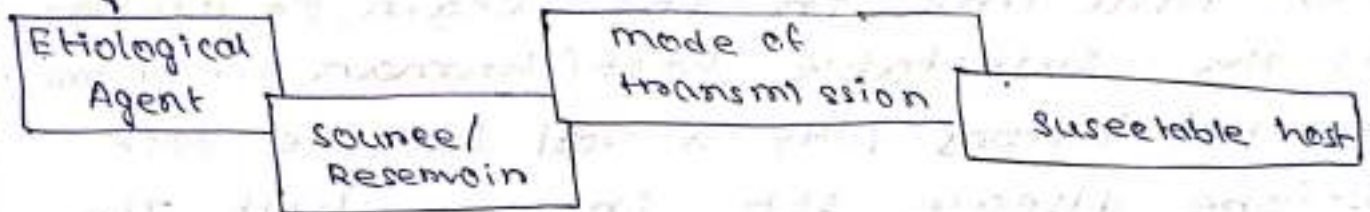 Etiological
Agent
source/
Resemoin
mode of
transmission
suseetable host